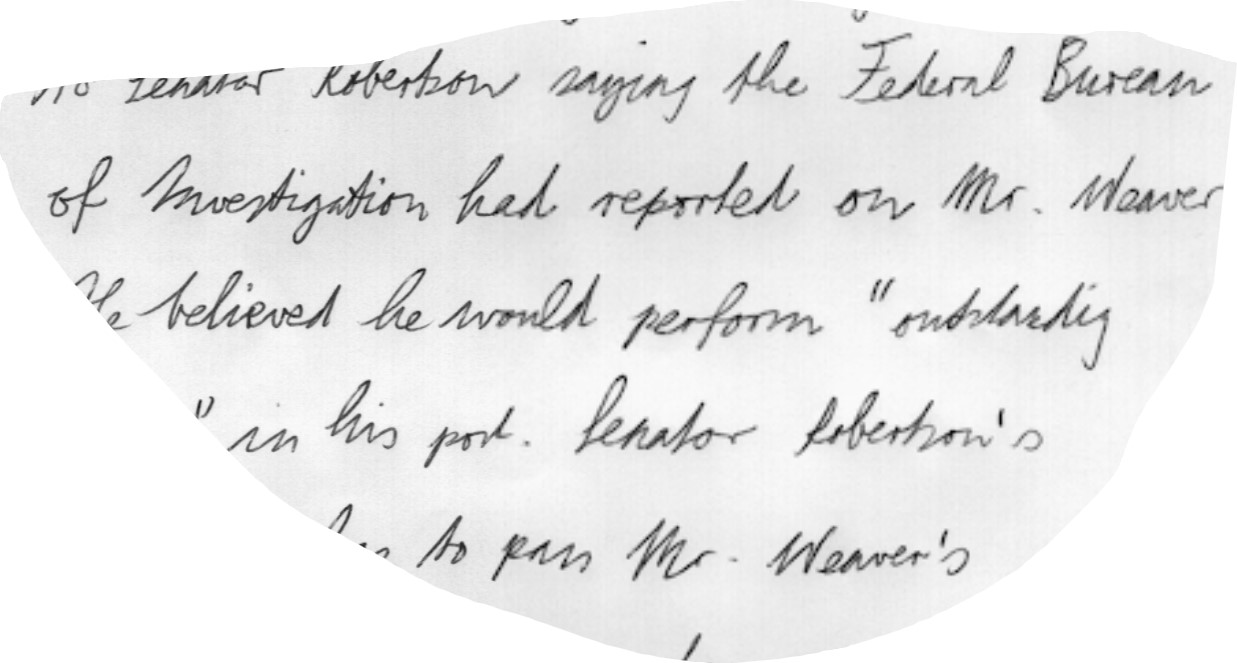 to Senator Robertson saying the Federal Bureau
of Investigation had reported on Mr. Weaver
He believed he would perform "outstandig
" in his post. Senator Robertson's
has to pass Mr. Weaver's